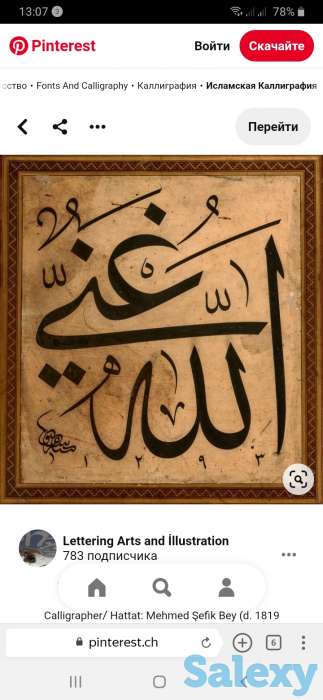 13:07 78%
Pinterest Войти Скачайте
ство • Fonts And Calligraphy • Каллиграфия • Исламская Каллиграфия
Перейти
غني
الله
١٢٩٣
Lettering Arts and İllustration
783 подписчика
Calligrapher/ Hattat: Mehmed Şefik Bey (d. 1819
pinterest.ch 6
Salexy